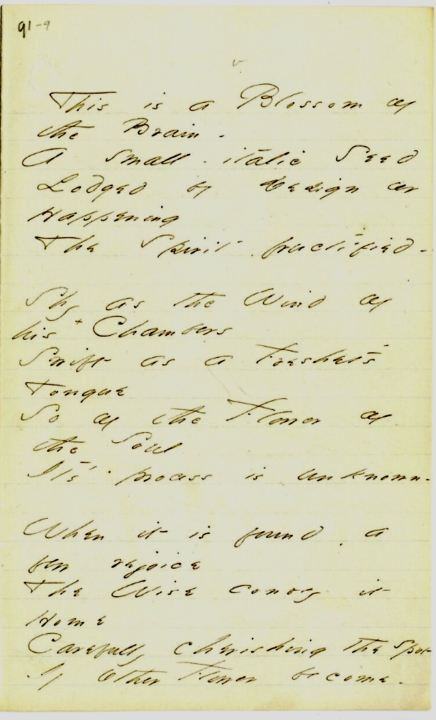 91-9
This is a Blossom of
the Brain -
A small - italic Seed
Lodged by Design or
Happening
The Spirit fructified -
Shy as the Wind of
his Chambers
Swift as a Freshet's
Tongue
So of the Flower of
the Soul
It's process is unknown -
When it is found, a
few rejoice
The Wise convey it
Home
Carefully cherishing the spot
If other Flower become -